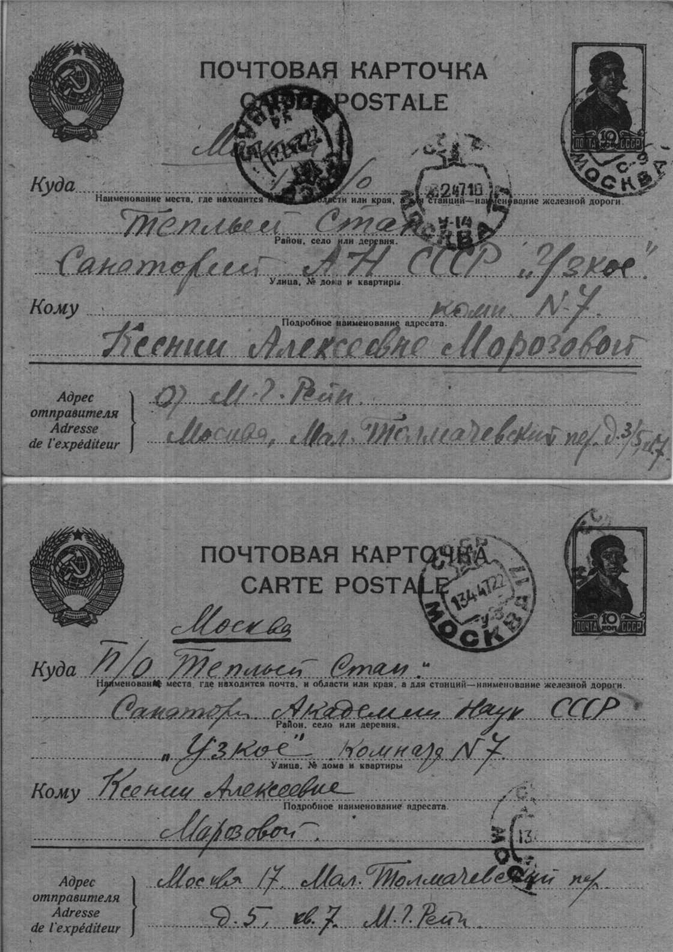 ПОЧТОВАЯ КАРТОЧКА
CARTE POSTALE
ПОЧТА 10 КОП. СССР
МОСКВА
Куда п/о
Наименование места, где находится почта, и области или края, а для станций—наименование железной дороги.
Теплый Стан
Район, село или деревня.
Санаторий АН СССР „Узкое".
Улица, № дома и квартиры
Кому комн. N-7.
Подробное наименование адресата.
Ксении Алексеевне Морозовой
Адрес отправителя
Adresse de l'expéditeur
от М.Г. Рейн.
Москва, Мал. Толмачевский пер. д. 3/5, кв. 7.
ПОЧТОВАЯ КАРТОЧКА
CARTE POSTALE
ПОЧТА 10 КОП. СССР
СССР
13 4 47 22
МОСКВА 17
Москва
Куда П/о Теплый Стан.
Наименование места, где находится почта, и области или края, а для станций—наименование железной дороги.
Санатори Академии Наук СССР
Район, село или деревня.
„Узкое" комната N 7.
Улица, № дома и квартиры
Кому Ксении Алексеевне
Подробное наименование адресата.
Марозовой.
Адрес отправителя
Adresse de l'expéditeur
Москва 17. Мал. Толмачевский пер.
д. 5, кв. 7. М.Г. Рейн.